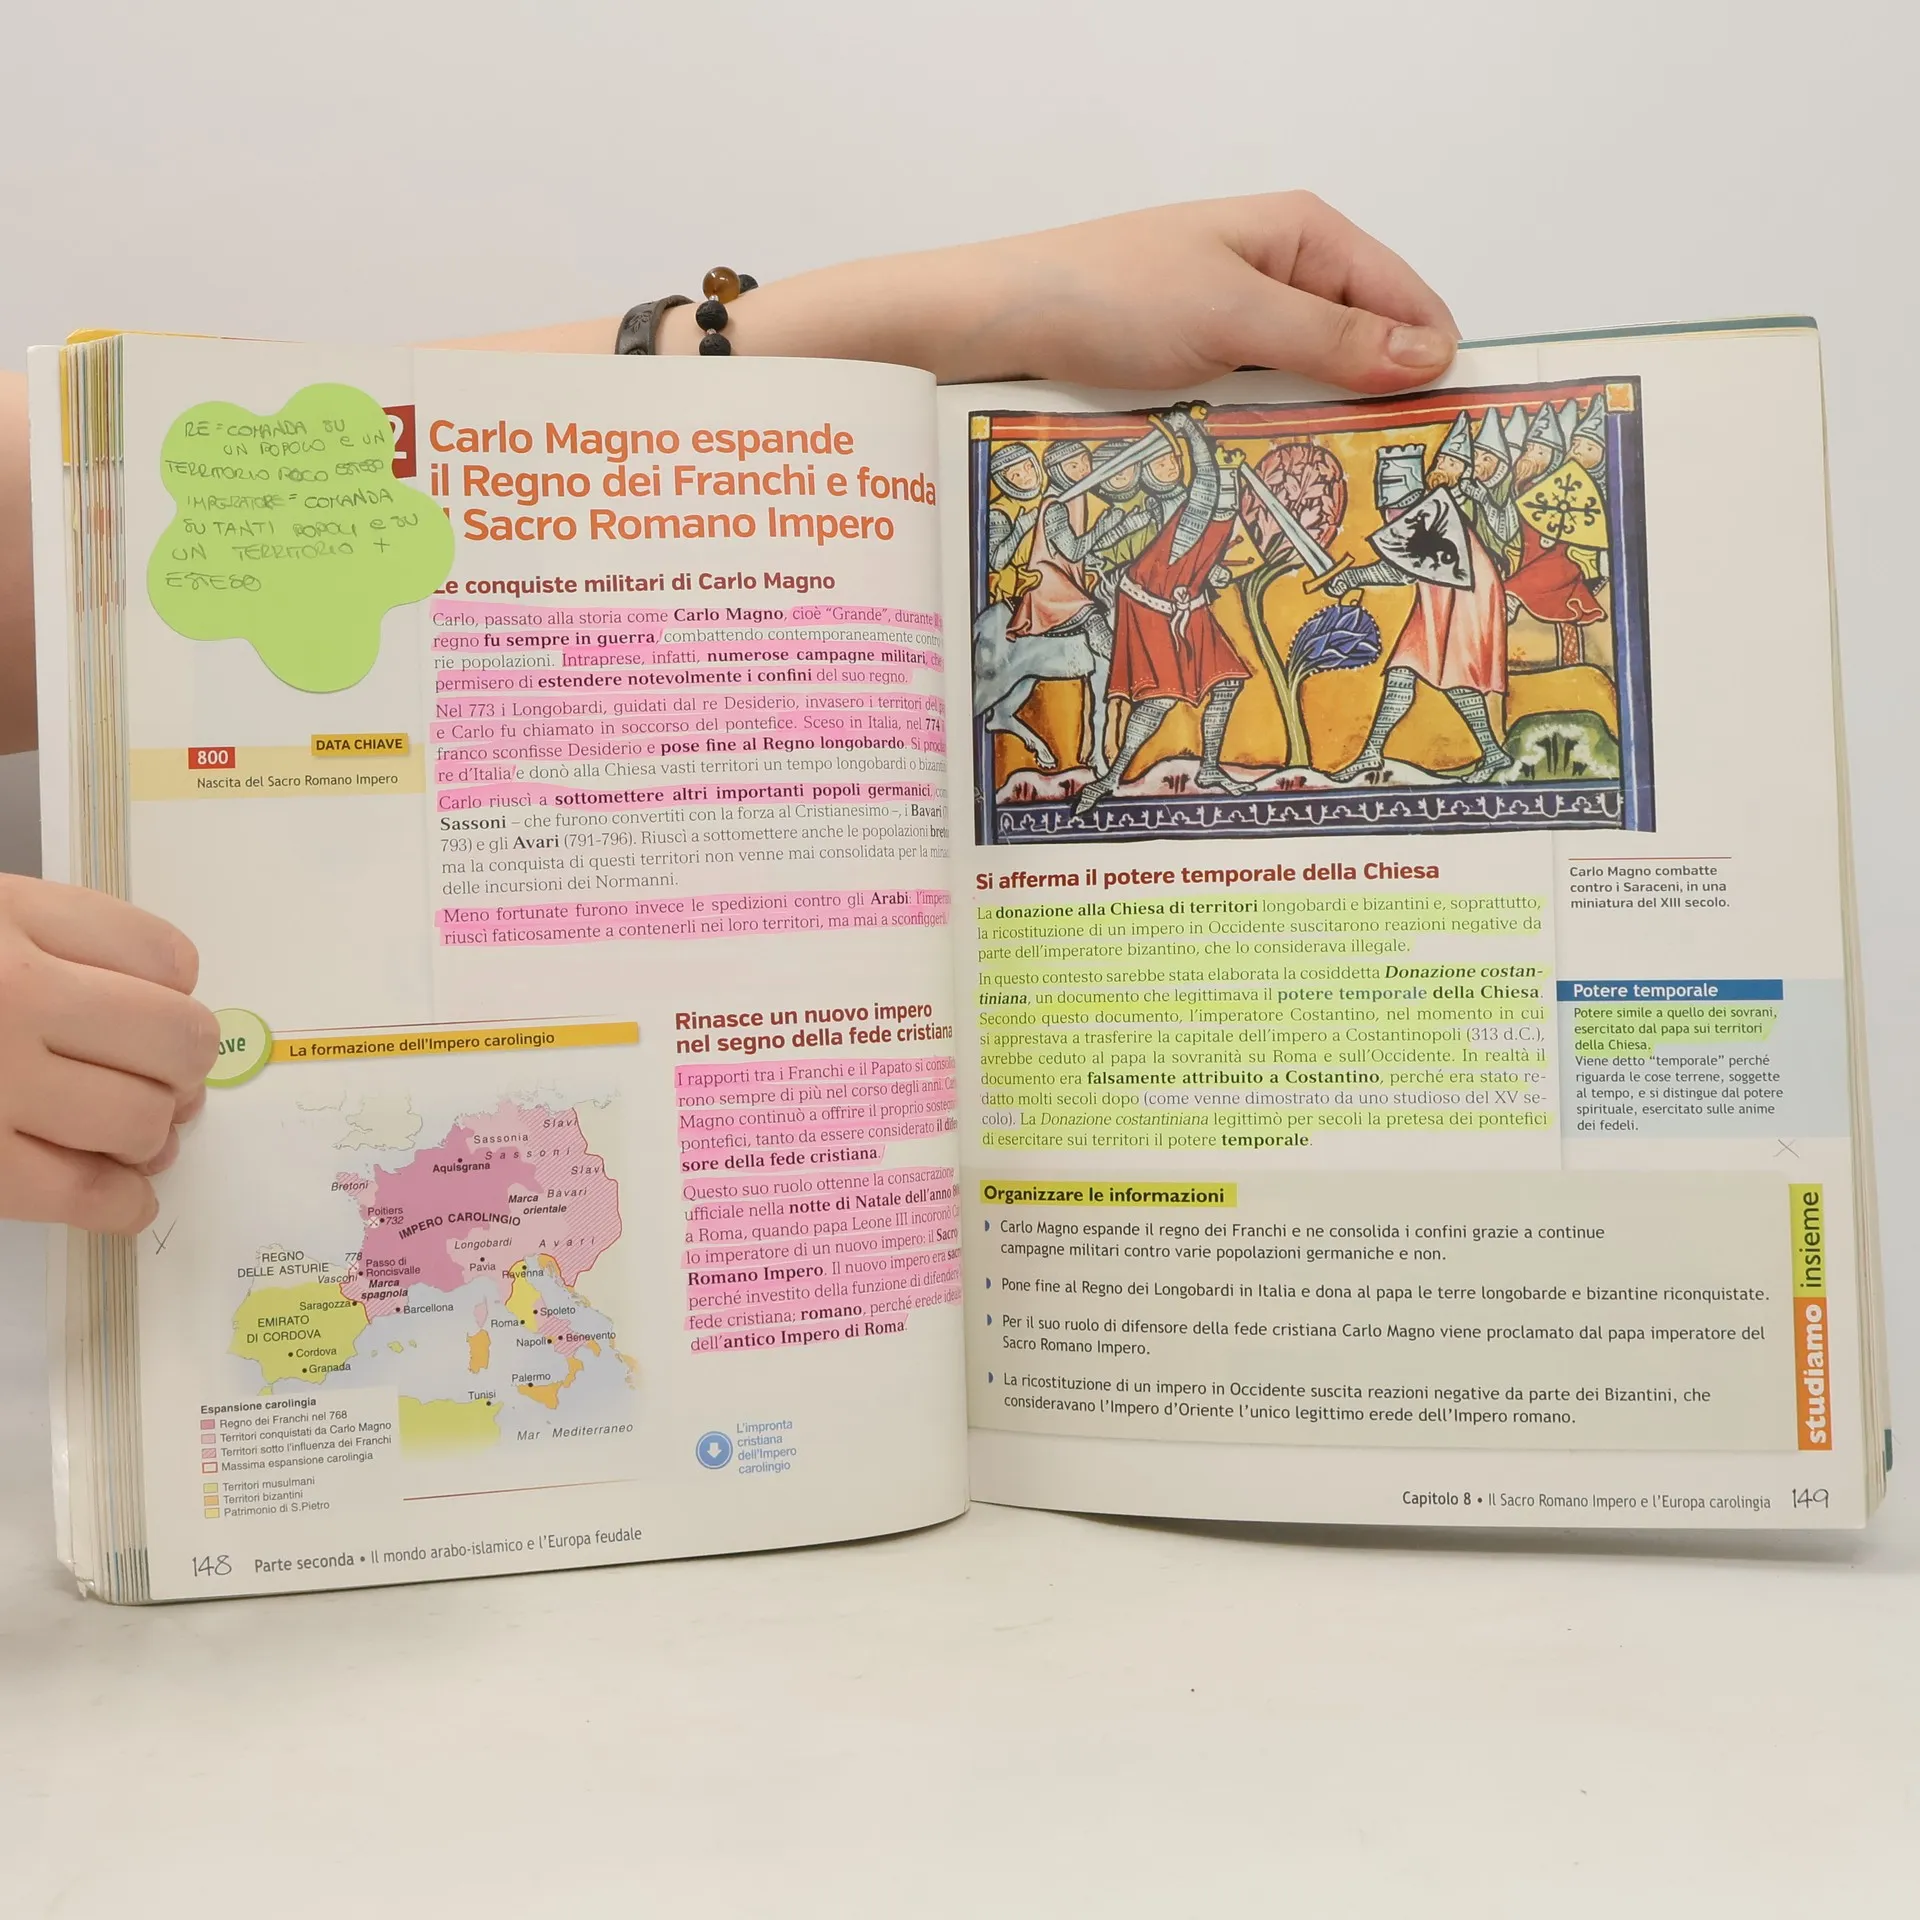 RE = COMANDA SU
UN POPOLO E UN
TERRITORIO POCO ESTESO
IMPERATORE = COMANDA
SU TANTI POPOLI E SU
UN TERRITORIO +
ESTESO
2
Carlo Magno espande
il Regno dei Franchi e fonda
Sacro Romano Impero
Le conquiste militari di Carlo Magno
Carlo, passato alla storia come Carlo Magno, cioè “Grande”, durante
regno fu sempre in guerra, combattendo contemporaneamente
rie popolazioni. Intraprese, infatti, numerose campagne militari,
permisero di estendere notevolmente i confini del suo regno.
Nel 773 i Longobardi, guidati dal re Desiderio, invasero i territori
e Carlo fu chiamato in soccorso del pontefice. Sceso in Italia, nel 774
franco sconfisse Desiderio e pose fine al Regno longobardo. Si
re d’Italia e donò alla Chiesa vasti territori un tempo longobardi o
Carlo riuscì a sottomettere altri importanti popoli germanici,
Sassoni – che furono convertiti con la forza al Cristianesimo –, i Bavari
793) e gli Avari (791-796). Riuscì a sottomettere anche le popolazioni
ma la conquista di questi territori non venne mai consolidata per la
delle incursioni dei Normanni.
Meno fortunate furono invece le spedizioni contro gli Arabi:
riuscì faticosamente a contenerli nei loro territori, ma mai a
DATA CHIAVE
800
Nascita del Sacro Romano Impero
ove
La formazione dell’Impero carolingio
Slavi
Sassonia
Sassoni
Aquisgrana
Slavi
Bretoni
Marca
orientale
Bàvari
Poitiers
732
IMPERO CAROLINGIO
Longobardi
Avari
REGNO
DELLE ASTURIE
778
Passo di
Roncisvalle
Vasconi
Marca
spagnola
Pavia
Ravenna
Saragozza
Barcellona
EMIRATO
DI CORDOVA
Spoleto
Roma
Napoli
Benevento
Cordova
Granada
Palermo
Tunisi
Mar Mediterraneo
Espansione carolingia
Regno dei Franchi nel 768
Territori conquistati da Carlo Magno
Territori sotto l’influenza dei Franchi
Massima espansione carolingia
Territori musulmani
Territori bizantini
Patrimonio di S.Pietro
Rinasce un nuovo impero
nel segno della fede cristiana
I rapporti tra i Franchi e il Papato si
rono sempre di più nel corso degli anni.
Magno continuò a offrire il proprio
pontefici, tanto da essere considerato il
sore della fede cristiana.
Questo suo ruolo ottenne la consacrazione
ufficiale nella notte di Natale dell’anno
a Roma, quando papa Leone III incoronò
lo imperatore di un nuovo impero: il Sacro
Romano Impero. Il nuovo impero era
perché investito della funzione di difendere
fede cristiana; romano, perché erede
dell’antico Impero di Roma.
L’impronta
cristiana
dell’Impero
carolingio
148 Parte seconda • Il mondo arabo-islamico e l’Europa feudale
Si afferma il potere temporale della Chiesa
La donazione alla Chiesa di territori longobardi e bizantini e, soprattutto,
la ricostituzione di un impero in Occidente suscitarono reazioni negative da
parte dell’imperatore bizantino, che lo considerava illegale.
In questo contesto sarebbe stata elaborata la cosiddetta Donazione costan-
tiniana, un documento che legittimava il potere temporale della Chiesa.
Secondo questo documento, l’imperatore Costantino, nel momento in cui
si apprestava a trasferire la capitale dell’impero a Costantinopoli (313 d.C.),
avrebbe ceduto al papa la sovranità su Roma e sull’Occidente. In realtà il
documento era falsamente attribuito a Costantino, perché era stato re-
datto molti secoli dopo (come venne dimostrato da uno studioso del XV se-
colo). La Donazione costantiniana legittimò per secoli la pretesa dei pontefici
di esercitare sui territori il potere temporale.
Carlo Magno combatte
contro i Saraceni, in una
miniatura del XIII secolo.
Potere temporale
Potere simile a quello dei sovrani,
esercitato dal papa sui territori
della Chiesa.
Viene detto “temporale” perché
riguarda le cose terrene, soggette
al tempo, e si distingue dal potere
spirituale, esercitato sulle anime
dei fedeli.
Organizzare le informazioni
Carlo Magno espande il regno dei Franchi e ne consolida i confini grazie a continue
campagne militari contro varie popolazioni germaniche e non.
Pone fine al Regno dei Longobardi in Italia e dona al papa le terre longobarde e bizantine riconquistate.
Per il suo ruolo di difensore della fede cristiana Carlo Magno viene proclamato dal papa imperatore del
Sacro Romano Impero.
La ricostituzione di un impero in Occidente suscita reazioni negative da parte dei Bizantini, che
consideravano l’Impero d’Oriente l’unico legittimo erede dell’Impero romano.
studiamo insieme
Capitolo 8 • Il Sacro Romano Impero e l’Europa carolingia 149